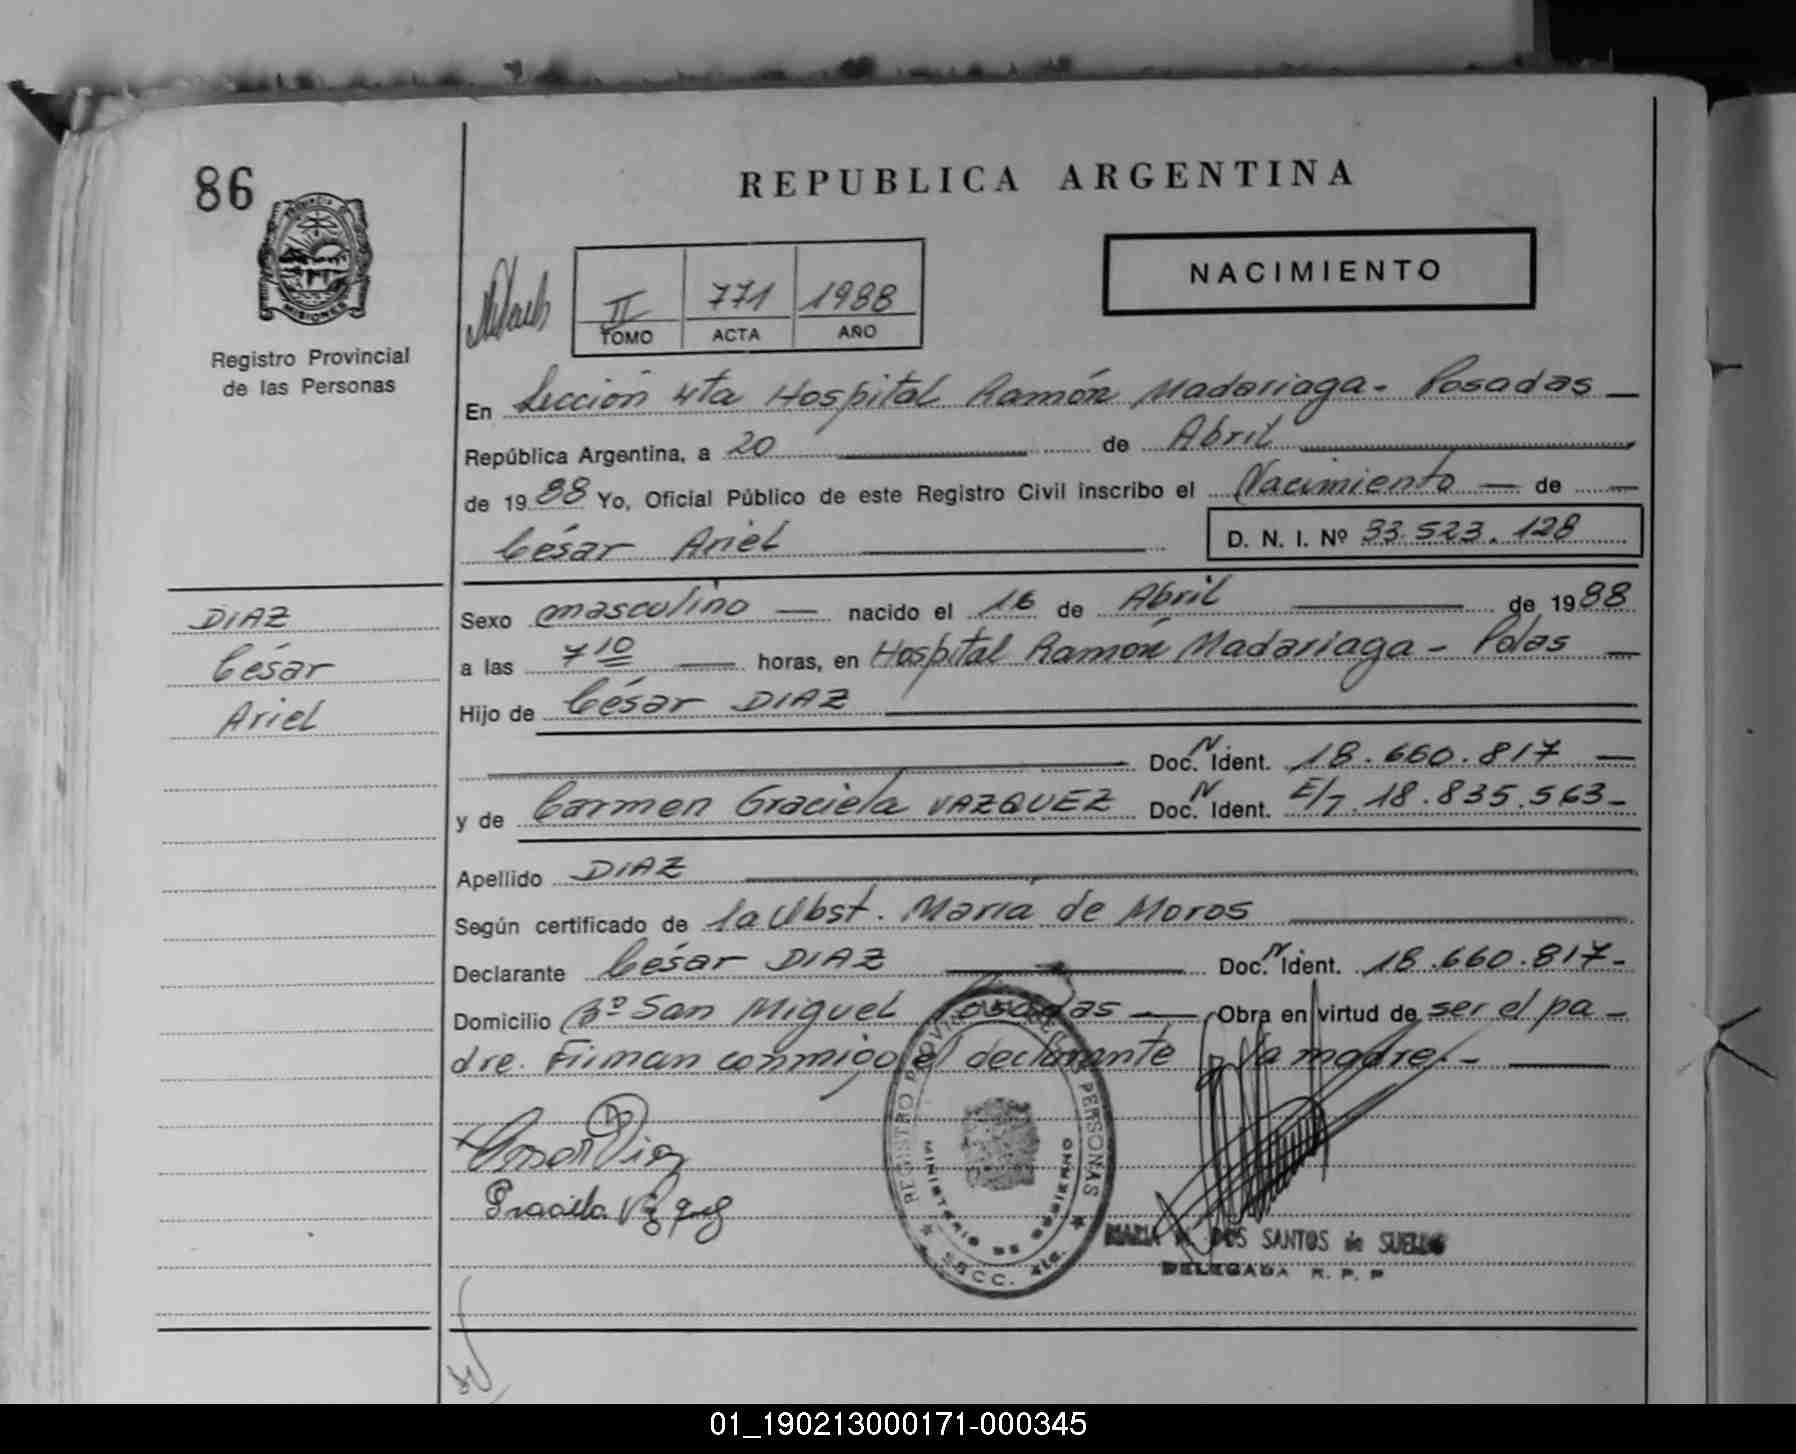 86
REPUBLICA ARGENTINA
MISIONES
Registro Provincial
de las Personas
II 771 1988
TOMO ACTA AÑO
NACIMIENTO
En Sección 4ta Hospital Ramón Madariaga - Posadas
República Argentina, a 20 de Abril
de 1988 Yo, Oficial Público de este Registro Civil inscribo el Nacimiento de
César Ariel D. N. I. Nº 33.523.128
DIAZ
César
Ariel
Sexo masculino nacido el 16 de Abril de 1988
a las 7 10 horas, en Hospital Ramón Madariaga - Pdas
Hijo de César DIAZ
Doc. N Ident. 18.660.817
y de Carmen Graciela VAZQUEZ Doc. N Ident. E/7. 18.835.563-
Apellido DIAZ
Según certificado de la Obst. Maria de Moros
Declarante César DIAZ Doc. N Ident. 18.660.817-
Domicilio Bº San Miguel Posadas Obra en virtud de ser el pa-
dre. Firman conmigo el declarante y la madre.-
Graciela Vazquez
REGISTRO PROVINCIAL PERSONAS
MINISTERIO DE GOBIERNO
SECC. 4ta.
MARIA DOS SANTOS de
DELEGADA R. P. P
01_190213000171-000345